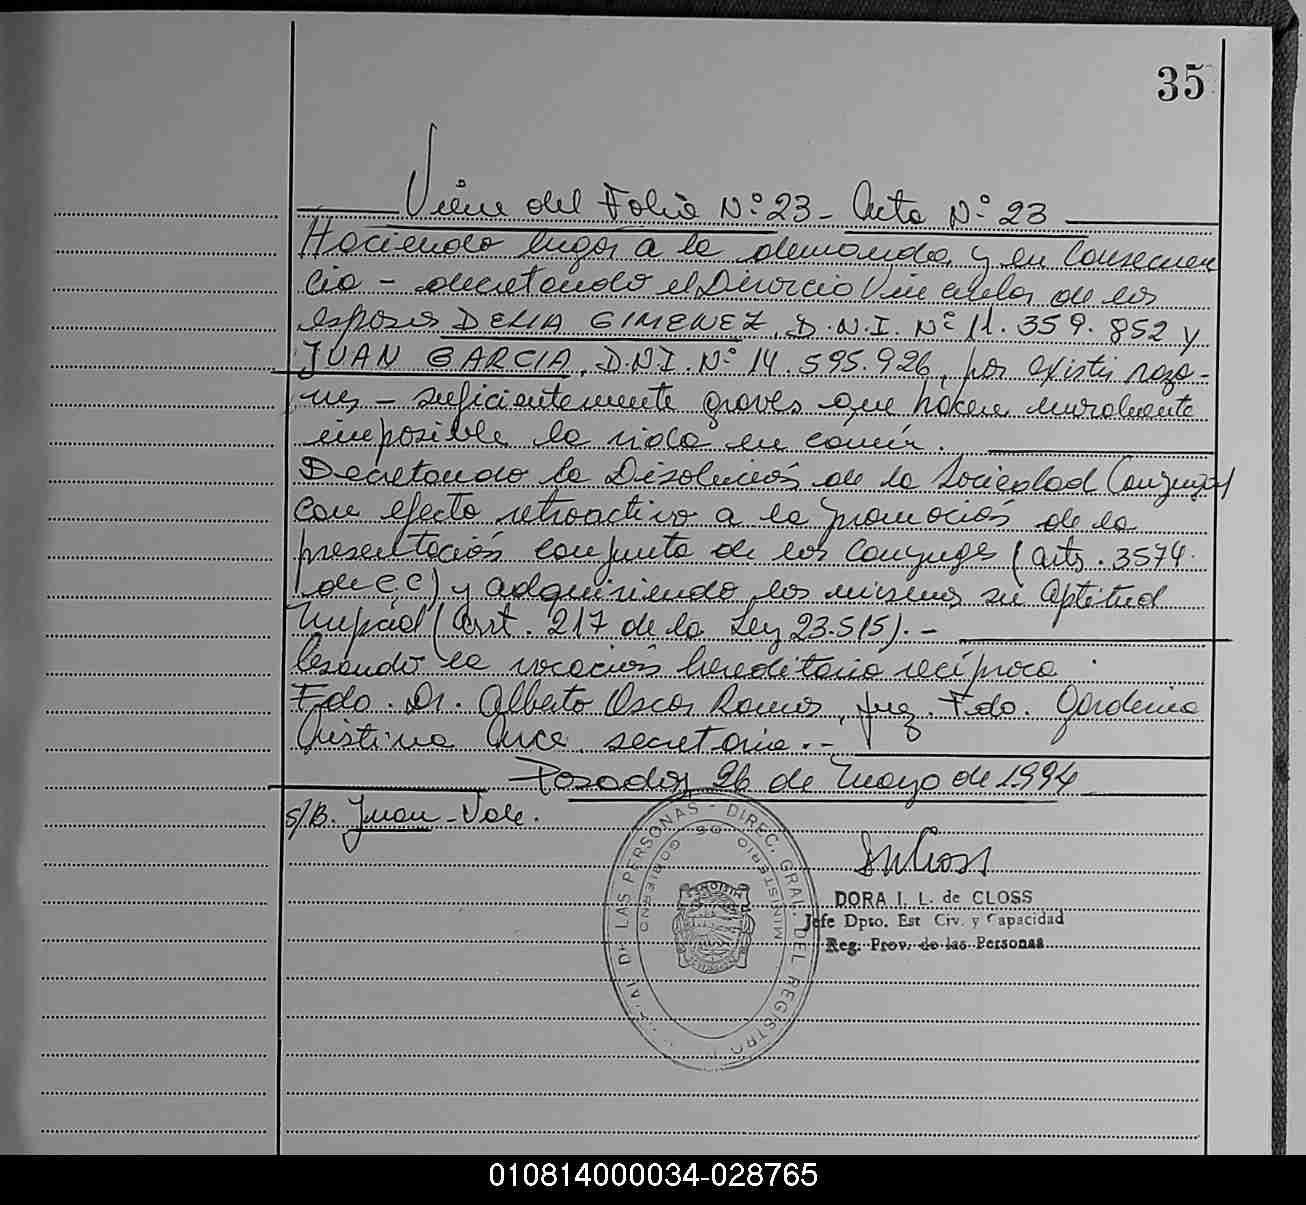 35
Viene del Folio Nº 23 - Acta Nº 23
Haciendo lugar a la demanda y en consecuen
cia - decretando el Divorcio Vincular de los
esposos DELIA GIMENEZ, D.N.I. Nº 11.359.852 y
JUAN GARCIA, D.N.I. Nº 14.595.926, por existir razo-
nes - suficientemente graves que hacen moralmente
imposible la vida en común.
Decretando la Disolución de la Sociedad Conyugal
con efecto retroactivo a la promoción de la
presentación conjunta de los Conyuges (arts. 3574
de C.C) y adquiriendo los mismos su Aptitud
Nupcial (Art. 217 de la Ley 23.515). -
Cesando la vocación hereditaria recíproca.
Fdo. Dr. Alberto Oscar Ramos, Juez. Fdo. Gardenia
Cristina Arce secretaria. -
Posadas, 26 de Mayo de 1994
s/B. Juan - Vale.
DORA I. L. de CLOSS
Jefe Dpto. Est Civ. y Capacidad
Reg. Prov. de las Personas
DIREC. GRAL. DEL REGISTRO DE LAS PERSONAS
MINISTERIO DE GOBIERNO
MISIONES
010814000034-028765